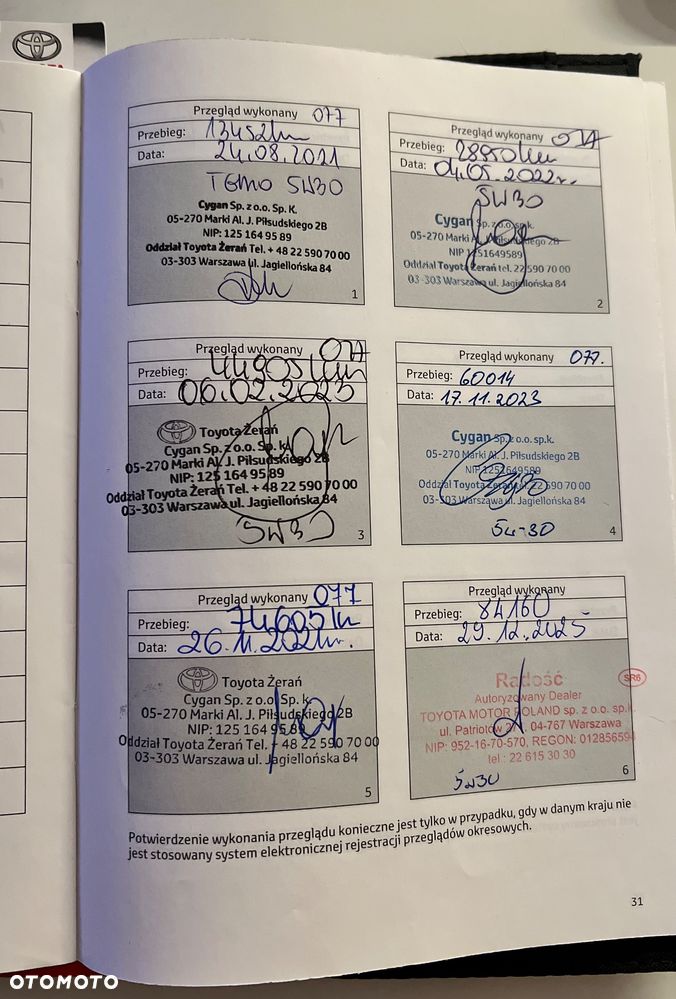 Przegląd wykonany 077
Przebieg: 13452km
Data: 24.08.2021
TEMO 5W30
Cygan Sp. z o.o. Sp. K.
05-270 Marki Al. J. Piłsudskiego 2B
NIP: 125 164 95 89
Oddział Toyota Żerań Tel. + 48 22 590 70 00
03-303 Warszawa ul. Jagiellońska 84
1
Przegląd wykonany 077
Przebieg: 28950km
Data: 04.05.2022r.
5W30
Cygan Sp. z o.o. sp.k.
05-270 Marki Al. J. Piłsudskiego 2B
NIP 1251649589
Oddział Toyota Żerań tel. 22 590 70 00
03-303 Warszawa, ul. Jagiellońska 84
2
Przegląd wykonany 077
Przebieg: 44905km
Data: 06.02.2023
Toyota Żerań
Cygan Sp. z o.o. Sp. k.
05-270 Marki Al. J. Piłsudskiego 2B
NIP: 125 164 95 89
Oddział Toyota Żerań Tel. + 48 22 590 70 00
03-303 Warszawa ul. Jagiellońska 84
5W30
3
Przegląd wykonany 077.
Przebieg: 60014
Data: 17.11.2023
Cygan Sp. z o.o. sp.k.
05-270 Marki Al. J. Piłsudskiego 2B
NIP 1251649589
Oddział Toyota Żerań tel. 22 590 70 00
03-303 Warszawa ul. Jagiellońska 84
5w-30
4
Przegląd wykonany 077
Przebieg: 74605km
Data: 26.11.2024r.
Toyota Żerań
Cygan Sp. z o.o. Sp. k.
05-270 Marki Al. J. Piłsudskiego 2B
NIP: 125 164 95 89
Oddział Toyota Żerań Tel. + 48 22 590 70 00
03-303 Warszawa ul. Jagiellońska 84
5
Przegląd wykonany
Przebieg: 84160
Data: 29.12.2025
Radość
SR6
Autoryzowany Dealer
TOYOTA MOTOR POLAND sp. z o.o. sp.k.
ul. Patriotów 04-767 Warszawa
NIP: 952-16-70-570, REGON: 012856594
tel: 22 615 30 30
5W30
6
Potwierdzenie wykonania przeglądu konieczne jest tylko w przypadku, gdy w danym kraju nie
jest stosowany system elektronicznej rejestracji przeglądów okresowych.
31
OTOMOTO